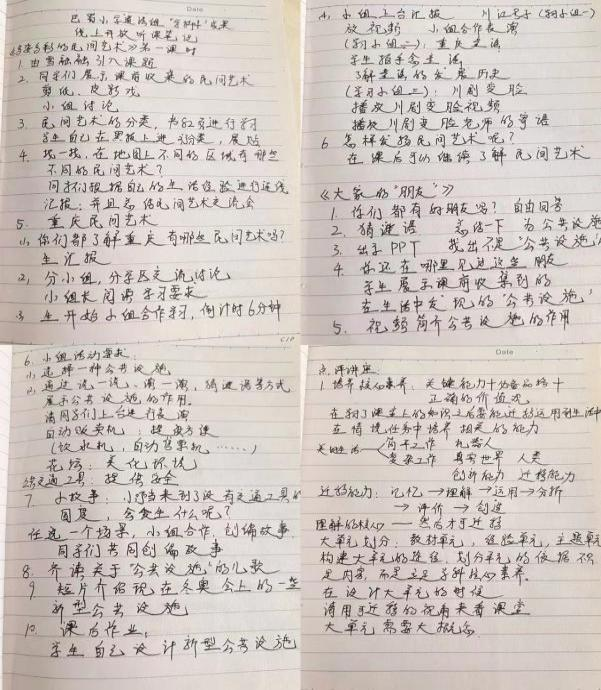 Date
巴蜀小学道法组"学科+"成果
线上开放听课笔记
《多姿多彩的民间艺术》第一课时
1. 由 引入课题
2. 同学们展示课前收集的民间艺术
剪纸、皮影戏
小组讨论
3. 民间艺术的分类,书82页进行学习
学生自己在黑板上进行分类,展贴
4. 找一找,在地图上不同的区域有哪些
不同的民间艺术?
同学们根据自己的生活经验进行连线
汇报:并且总结民间艺术交流会
5. 重庆民间艺术
你们都了解重庆有哪些民间艺术吗?
生汇报
2, 分小组,分学区交流讨论
小组长阅读学习要求
3 生开始小组合作学习,倒计时6分钟
小组上台汇报 川江号子(学习小组一)
放视频 小组合作表演
(学习小组二):重庆童谣
学生拍手念童谣
了解童谣的发展历史
(学习小组三):川剧变脸
播放川剧变脸视频
播放川剧变脸老师的寄语
6 怎样发扬民间艺术呢?
在课后可以继续了解民间艺术
《大家的"朋友"》
1. 你们都有好朋友吗?自由回答
2. 猜谜语 总结一下 为公共设施
3. 出示PPT 找出不是"公共设施"
4 你还在哪里见过这些朋友
学生展示课前收集到的
在生活中发现的"公共设施"
5. 视频简介公共设施的作用
6. 小组活动要求:
选择一种公共设施
通过说一说、演一演,猜谜语等方式
展示公共设施的作用。
请同学们上台进行表演
自动贩卖机:提供方便
(饮水机,自动售票机……)
花坛:美化环境
交通工具:提供安全
7. 小故事:小 来到了没有交通工具的
国度,会发生什么呢?
任选一个场景,小组合作,创编故事
同学们共同创编故事
8. 齐读关于"公共设施"的儿歌
9 短片介绍现在冬奥会上的一些
新型公共设施
10. 课后作业:
学生自己设计新型公共设施
Date
点评讲座:
1. 培养核心素养:关键能力+必备品格+
正确的价值观
在学习了课堂上的知识之后要能迁移运用到生活中
在情境任务中培养相关的能力
关键能力 简单工作 机器人
复杂工作 真实世界 人类
创新能力 迁移能力
迁移能力:记忆→理解→运用→分析
→评价→创造
理解的核心——然后才可迁移
大单元划分:教材单元,经验单元,主题单元
构建大单元的途径,划分单元的依据不只
是内容,而是立足学科核心素养。
在设计大单元的时候
请用可迁移的视角来看课堂
大单元需要大概念